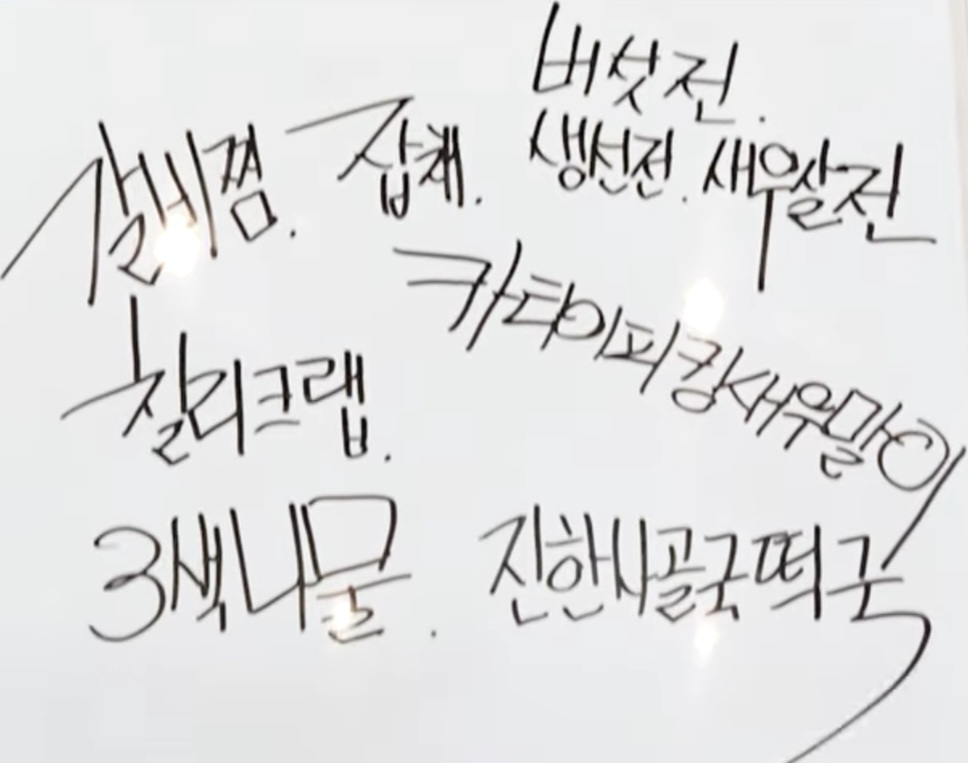 버섯전.
갈비찜. 잡채. 생선전. 새우살전
카타이피킹새우말이
칠리크랩.
3색나물. 진한사골국떡국